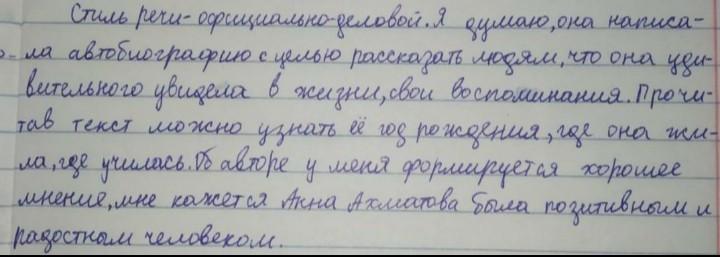 Стиль речи- официально-деловой. Я думаю, она написа-
ла автобиографию с целью рассказать людям, что она уди-
вительного увидела в жизни, свои воспоминания. Прочи-
тав текст можно узнать её год рождения, где она жи-
ла, где училась. Об авторе у меня формируется хорошее
мнение, мне кажется Анна Ахматова была позитивным и
радостным человеком.